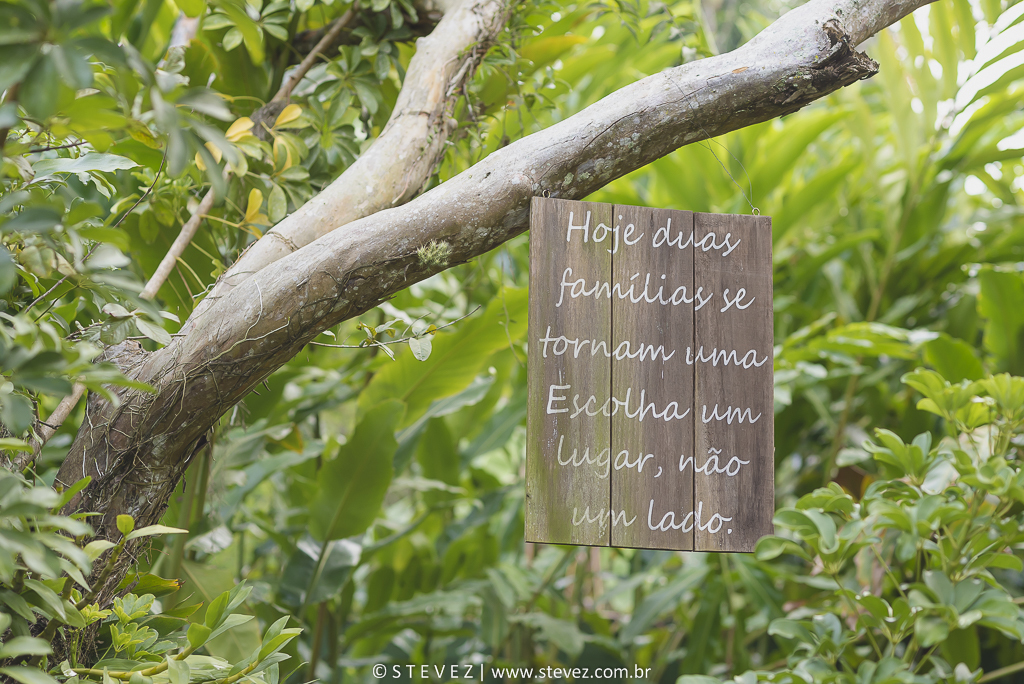 Hoje duas
famílias se
tornam uma
Escolha um
lugar, não
um lado.
© STEVEZ | www.stevez.com.br